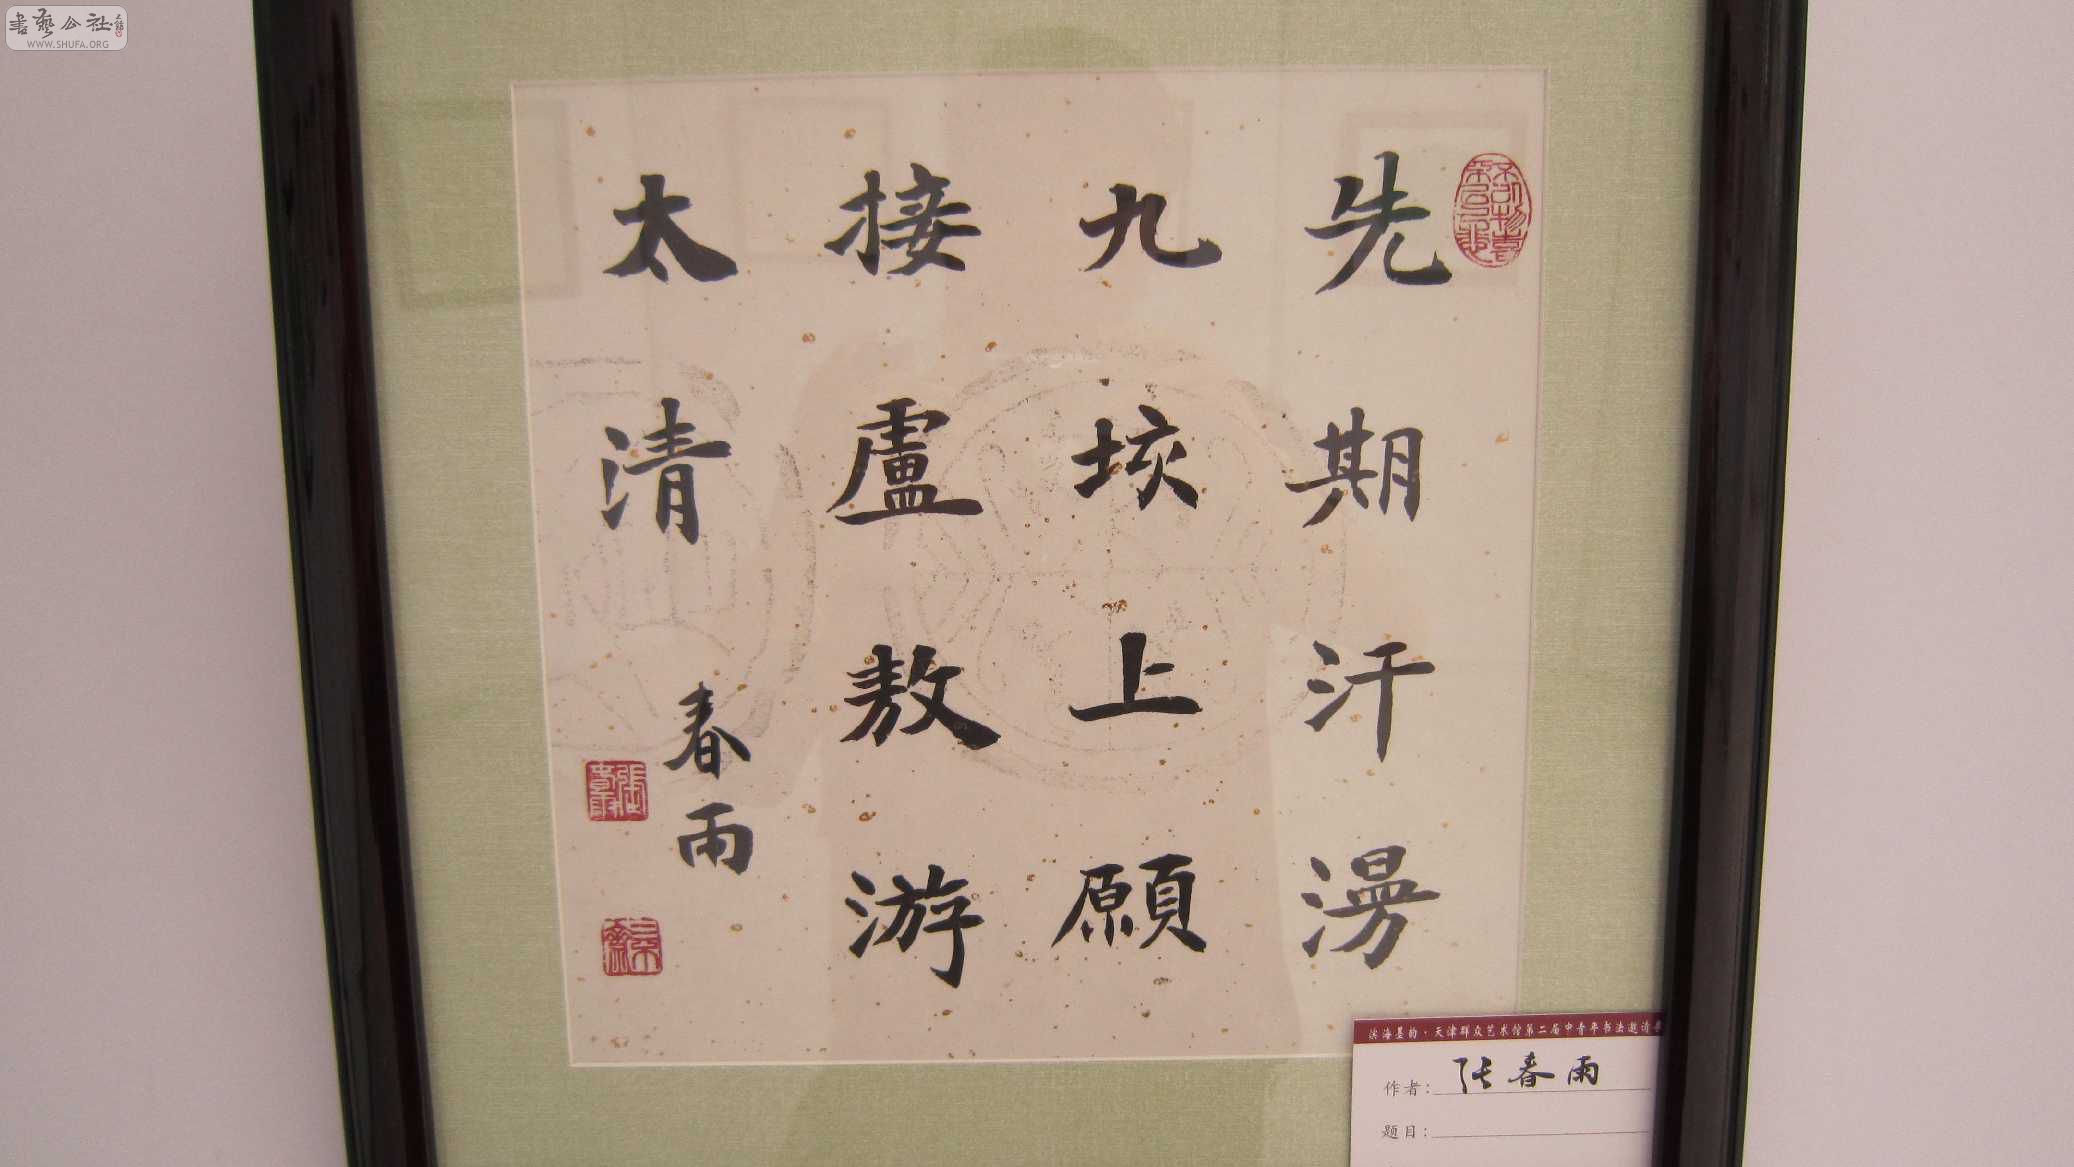 先期汗漫
九垓上願
接盧敖游
太清
春雨
滨海墨韵·天津群众艺术馆第二届中青年书法邀请
作者:张春雨
题目:
書藝公社
WWW.SHUFA.ORG